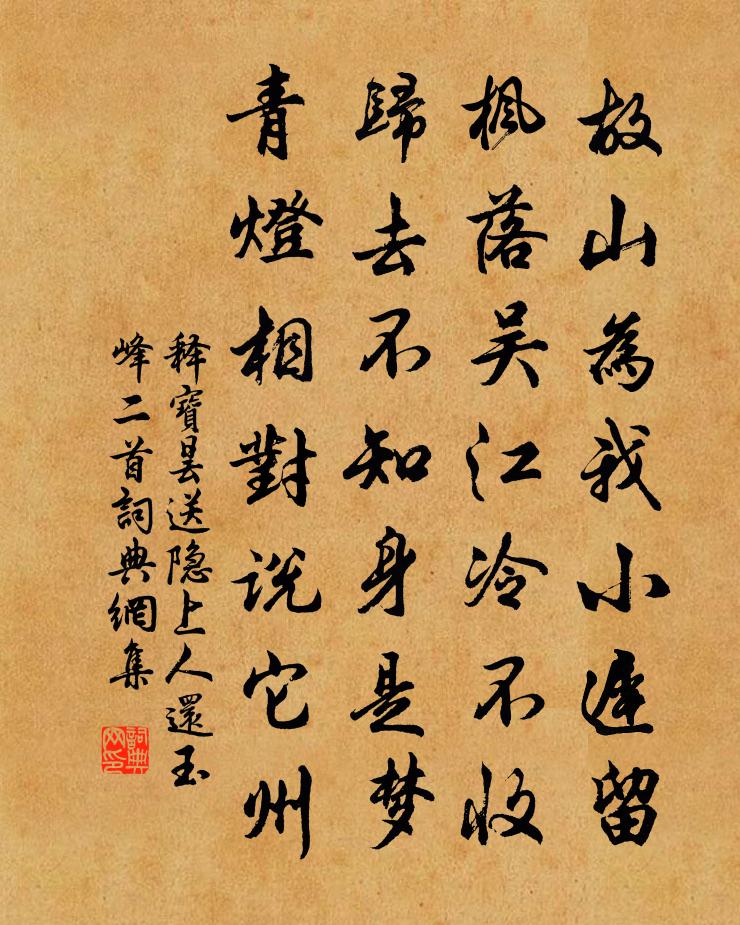 故山為我小遲留
枫落吴江冷不收
歸去不知身是梦
青燈相對説它州
释寶昙送隐上人還玉
峰二首詞典網集
詞典网印